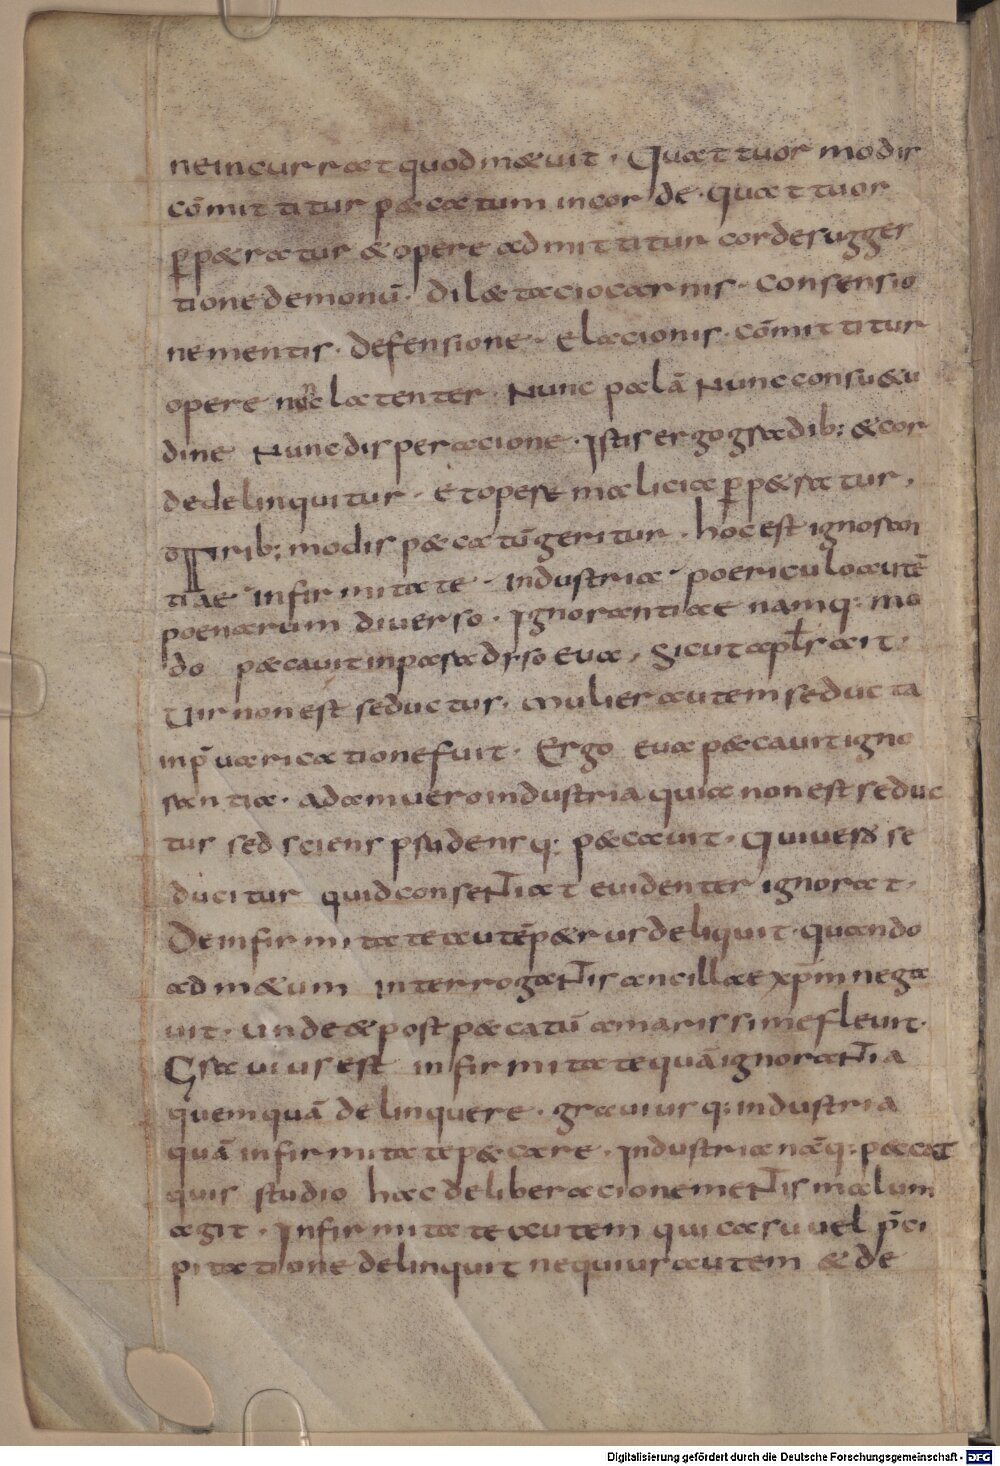 ne incurrat quod mæuit · Quattuor modis
cōmittitur peccatum in corde · quattuor
ꝑp&ratur & opere admittitur corde sugges
tione demonū · dil&tacio carnis · consensio
ne mentis · defensione · Elacionis · cōmittitur
opere nūc latenter · Nunc palā Nunc consu&u
dine Nunc disperacione · Istis ergo gradib; & cor
de delinquitur · Et opere malicia ꝑp&ratur ·
Trib; modis peccatū geritur · hoc est ignoran
tiae infirmitate · industria · poericulo autē
poenarum diuerso · Ignorantiae namq; mo
do peccauit in paradiso Eua · Sicut apłs ait ·
Uir non est seductus · mulier autem seducta
in p̄uaricatione fuit · Ergo Eua peccauit igno
rantia · adam uero industria quia non est seduc
tus sed sciens prudensq; peccauit · Qui uero se
ducitur quid consentiat euidenter ignorat ·
De infirmitate autē p&rus deliquit · quando
ad m&um interrogantis ancillae xp̄m nega
uit · unde & post peccatū amarissime fleuit ·
Grauius est infirmitate quā ignorantia
quemquā delinquere · grauiusq; industria
quā infirmitate peccare · Industria nāq; peccat
quis studio hac deliberacione mentis malum
agit · Infirmitate autem qui casu uel p̄ci
pitatione delinquit nequius autem & de
Digitalisierung gefördert durch die Deutsche Forschungsgemeinschaft - DFG